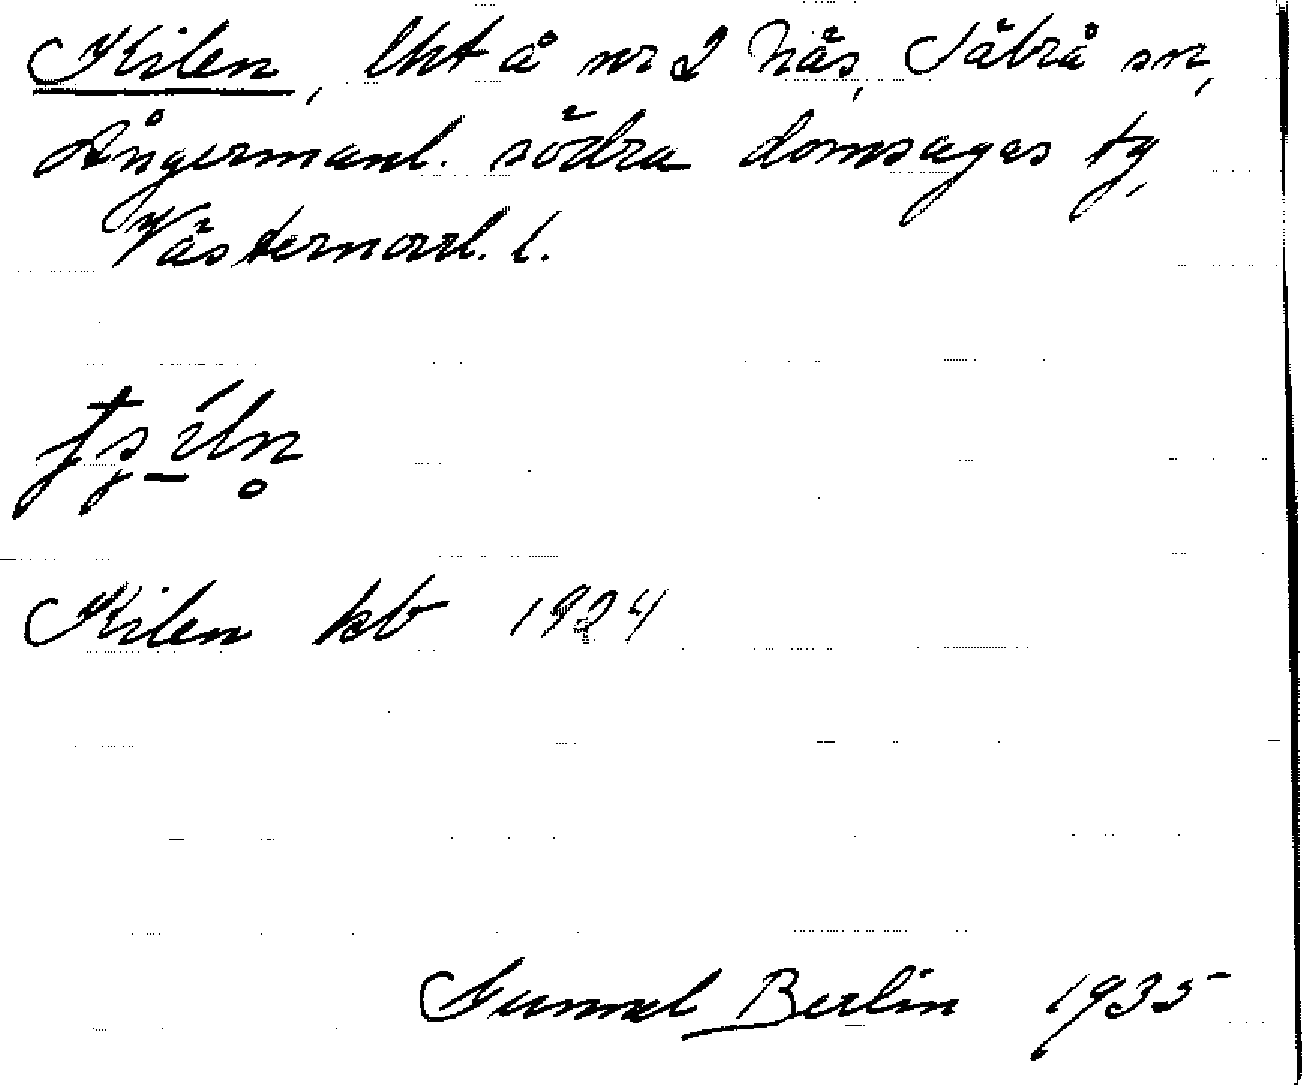 Kilen, lht å nr 2 Näs, Säbrå sn,
Ångermanl. södra domsagas tg,
Västernorrl. l.
Kilen kb 1924
Gunnel Berlin 1935